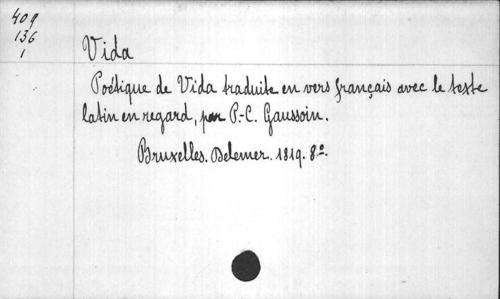 409
136
1
Vida
Poétique de Vida traduite en vers français avec le texte
latin en regard, par P.-C. Gaussoin.
Bruxelles. Delemer. 1819. 8º.